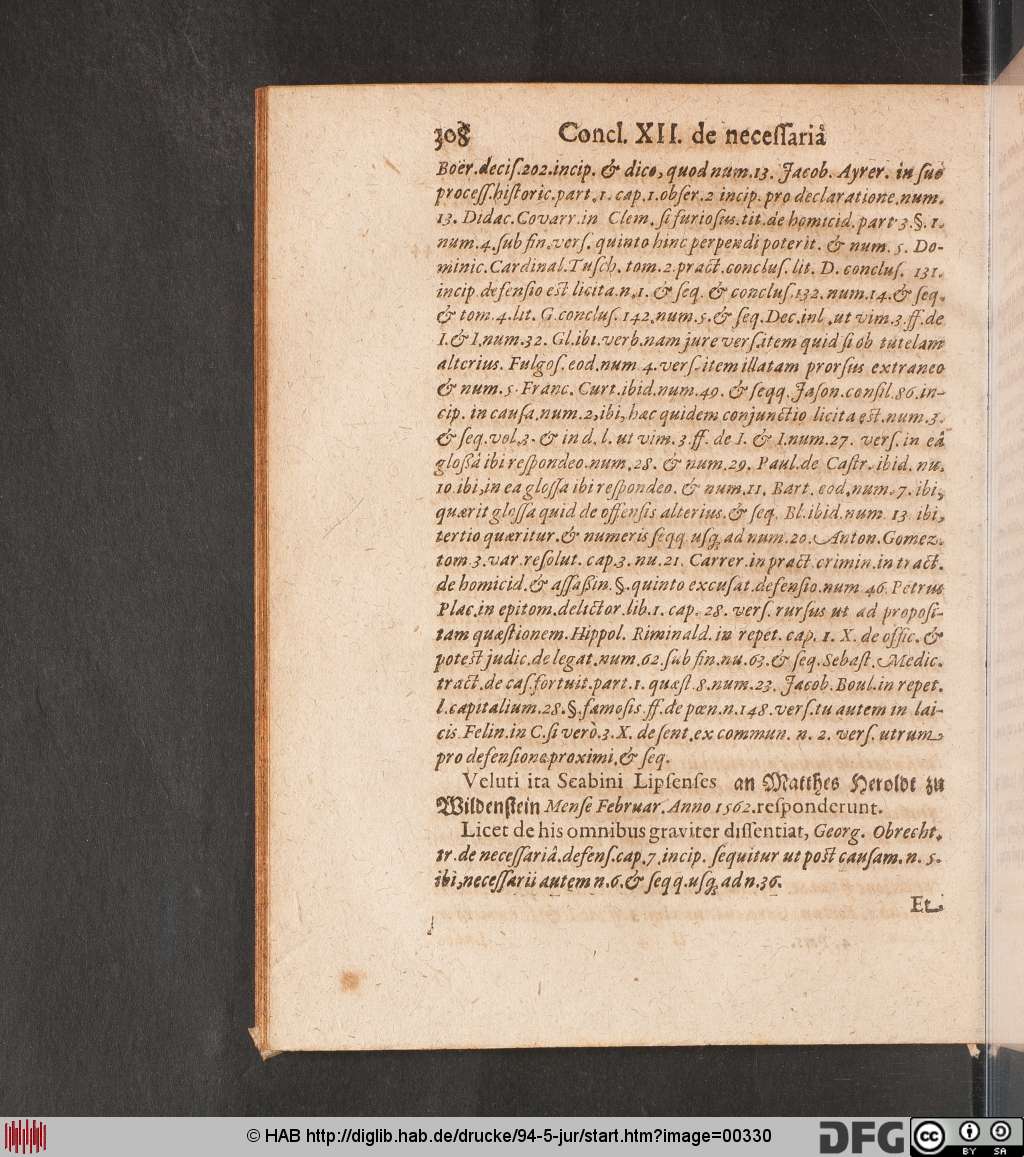 308 Concl. XII. de necessariâ
Boër.decis.202.incip. & dico, quod num.13. Jacob. Ayrer. in suo
process.historic.part.1. cap.1.obser.2 incip. pro declaratione.num.
13. Didac.Covarr.in Clem. si furiosus.tit.de homicid.part 3.§.1.
num.4.sub fin.vers. quinto hinc perpendi poterit. & num.5. Do-
minic.Cardinal.Tusch. tom.2.pract.conclus.lit. D. conclus. 131.
incip.defensio est licita.n.1. & seq. & conclus.132.num.14.& seq.
& tom.4.lit. G.conclus.142.num.5.& seq.Dec.inl.ut vim.3.ff.de
I.& I.num.32. Gl.ibi.verb.nam jure vers.item quid si ob tutelam
alterius. Fulgos.eod.num 4.vers.item illatam prorsus extraneo
& num.5. Franc. Curt.ibid.num.49. & seqq. Jason.consil.86.in-
cip. in causa.num.2,ibi, hæc quidem conjunctio licita est.num.3.
& seq.vol.3. & in d. l. ut vim.3.ff. de I. & I.num.27. vers. in eâ
glossâ ibi respondeo.num.28. & num.29. Paul.de Castr.ibid. nu.
10.ibi,in ea glossa ibi respondeo. & num.11. Bart. eod.num.7. ibi,
quærit glossa quid de offensis alterius.& seq. Bl.ibid.num.13. ibi,
tertio quæritur.& numeris seqq.usq; ad num.20. Anton.Gomez.
tom.3.var.resolut. cap.3. nu.21. Carrer.in pract.crimin.in tract.
de homicid.& assassin.§.quinto excusat.defensio.num.46. Petrus
Plac.in epitom.delictor.lib.1. cap. 28. vers. rursus ut ad proposi-
tam quæstionem.Hippol. Riminald.in repet. cap. 1. X. de offic. &
potest judic.delegat.num.62.sub fin.nu.63.& seq.Sebast. Medic.
tract.de cas.fortuit.part.1. quæst.8.num.23. Jacob. Boul.in repet.
l.capitalium.28.§.famosis.ff.de pœn.n.148.vers.tu autem in lai-
cis.Felin.in C.si verò.3.X. de sent.ex commun. n. 2. vers. utrum
pro defensione proximi,& seq.
Veluti ita Scabini Lipsenses an Matthes Heroldt zu
Wildenstein Mense Februar. Anno 1562.responderunt.
Licet de his omnibus graviter dissentiat, Georg. Obrecht.
tr.de necessariâ.defens.cap.7.incip. sequitur ut post causam.n.5.
ibi,necessarii autem n.6.& seqq.usq; ad n.36.
Et
© HAB http://diglib.hab.de/drucke/94-5-jur/start.htm?image=00330
DFG cc BY SA